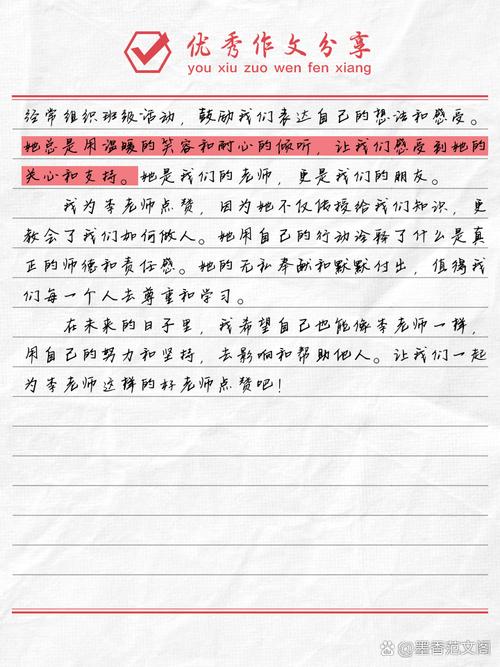 优秀作文分享
you xiu zuo wen fen xiang
经常组织班级活动，鼓励我们表达自己的想法和感受。
她总是用温暖的笑容和耐心的倾听，让我们感受到她的
关心和支持。她是我们的老师，更是我们的朋友。
我为李老师点赞，因为她不仅传授给我们知识，更
教会了我们如何做人。她用自己的行动诠释了什么是真
正的师德和责任感。她的无私奉献和默默付出，值得我
们每一个人去尊重和学习。
在未来的日子里，我希望自己也能像李老师一样，
用自己的努力和坚持，去影响和帮助他人。让我们一起
为李老师这样的好老师点赞吧！
@墨香范文阁